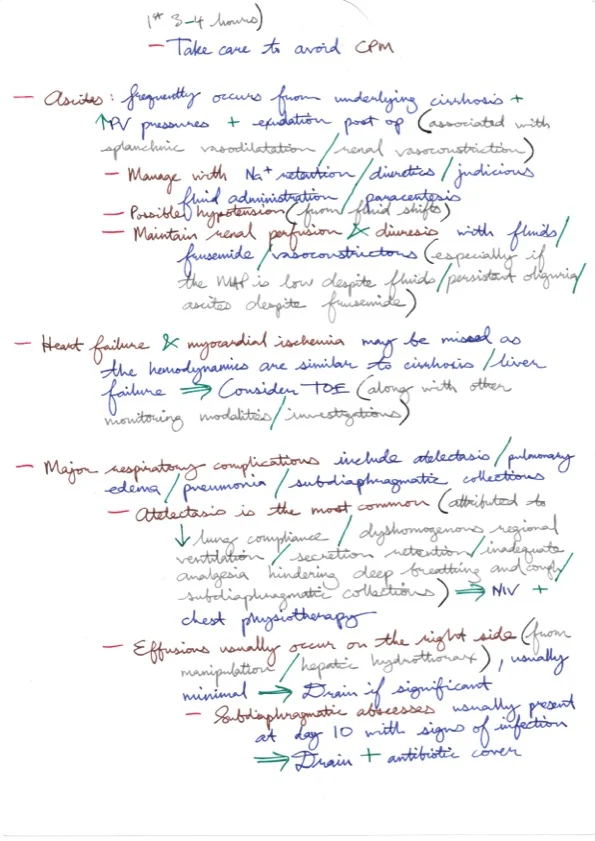 1st 3-4 hours)
- Take care to avoid CPM
- Ascites: frequently occurs from underlying cirrhosis +
↑PV pressures + exudation post op (associated with
splanchnic vasodilatation / renal vasoconstriction)
- Manage with Na+ retention / diuretics / judicious
fluid administration / paracentesis
- Possible hypotension (from fluid shifts)
- Maintain renal perfusion & diuresis with fluids/
frusemide / vasoconstrictors (especially if
the MAP is low despite fluids / persistent oliguria/
ascites despite frusemide)
- Heart failure & myocardial ischemia may be missed as
the hemodynamics are similar to cirrhosis / liver
failure ⇒ Consider TOE (along with other
monitoring modalities / investigations)
- Major respiratory complications include atelectasis / pulmonary
edema / pneumonia / subdiaphragmatic collections
- Atelectasis is the most common (attributed to
↓ lung compliance / dyshomogenous regional
ventilation / secretion retention / inadequate
analgesia hindering deep breathing and cough/
subdiaphragmatic collections) ⇒ NIV +
chest physiotherapy
- Effusions usually occur on the right side (from
manipulation / hepatic hydrothorax), usually
minimal ⇒ Drain if significant
- Subdiaphragmatic abscesses usually present
at day 10 with signs of infection
⇒ Drain + antibiotic cover